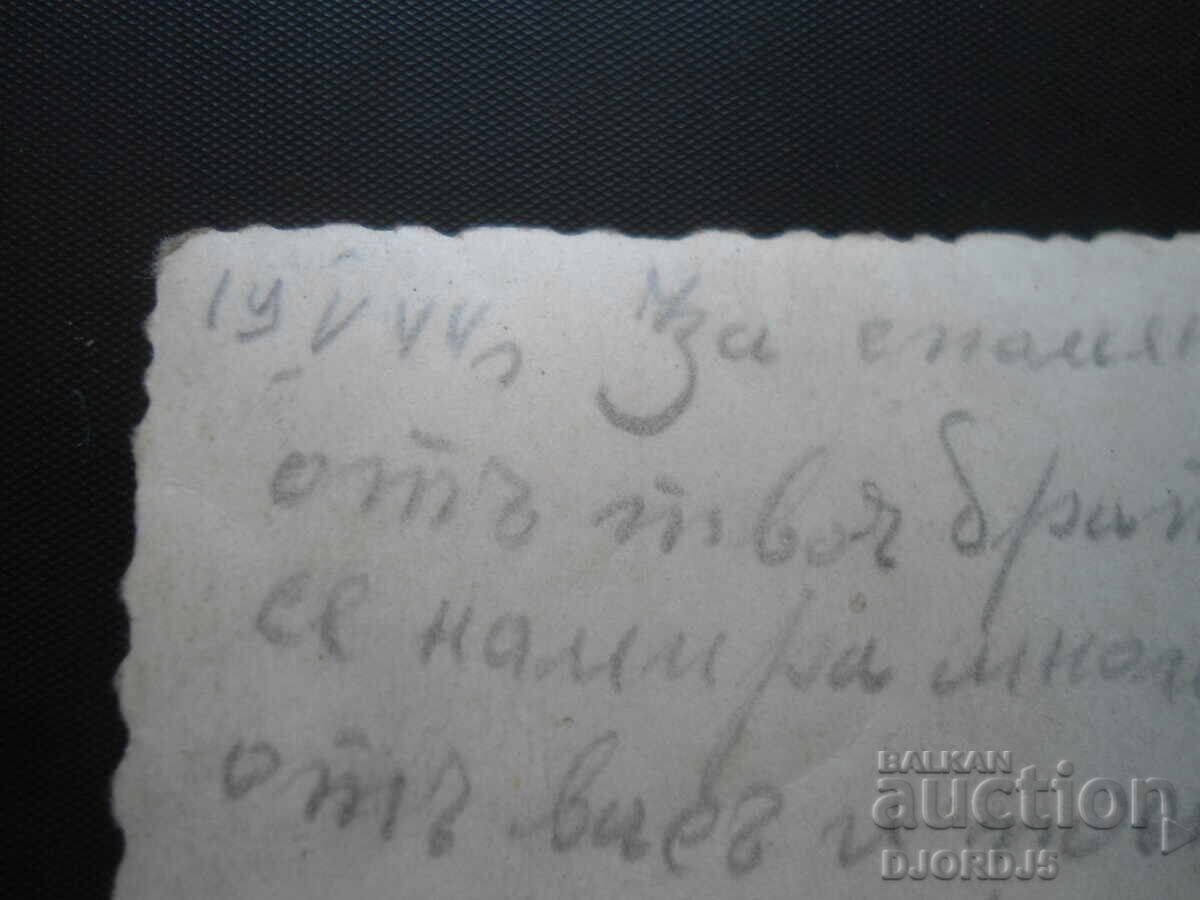 19 V 44 г За спомен
отъ твоя брат
се намира мног
отъ васъ и
BALKAN
auction
DJORDJ5